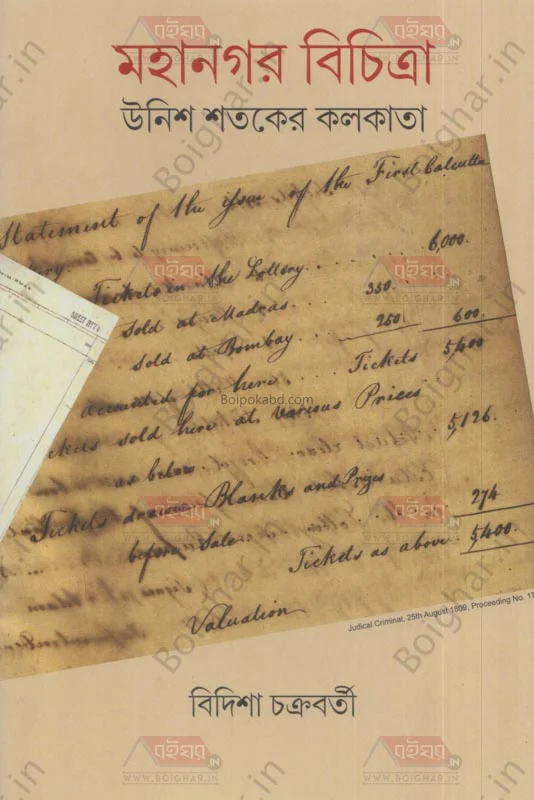 মহানগর বিচিত্রা
উনিশ শতকের কলকাতা
Statement of the issue of the First Calcutta
Tickets in the Lottery 6,000.
sold at Madras 350.
sold at Bombay 250 600
accounted for here Tickets 5,400
sold here at various Prices
as below 5,126.
Tickets drawn Blanks and Prizes
before Sale 274
Tickets as above 5,400.
Valuation
Judical Criminal, 25th August 1809, Proceeding No. 17
বিদিশা চক্রবর্তী
Boipokabd.com
বইঘর
WWW.BOIGHAR.IN
Boighar.in